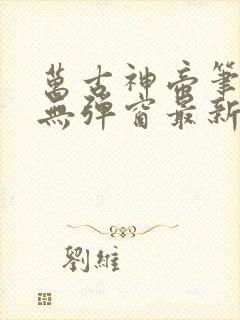 萬古神帝筆
無彈窗最新
劉維